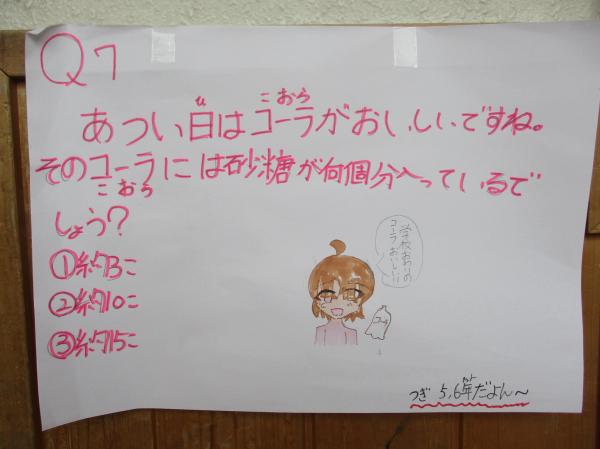 Q7
ひ
こおら
あつい日はコーラがおいしいですね。
そのコーラには砂糖が何個分入っているで
こおら
しょう?
①約3こ
②約10こ
③約15こ
学校おわりの
コーラおいしい!!
ねん
つぎ 5,6年だよん～